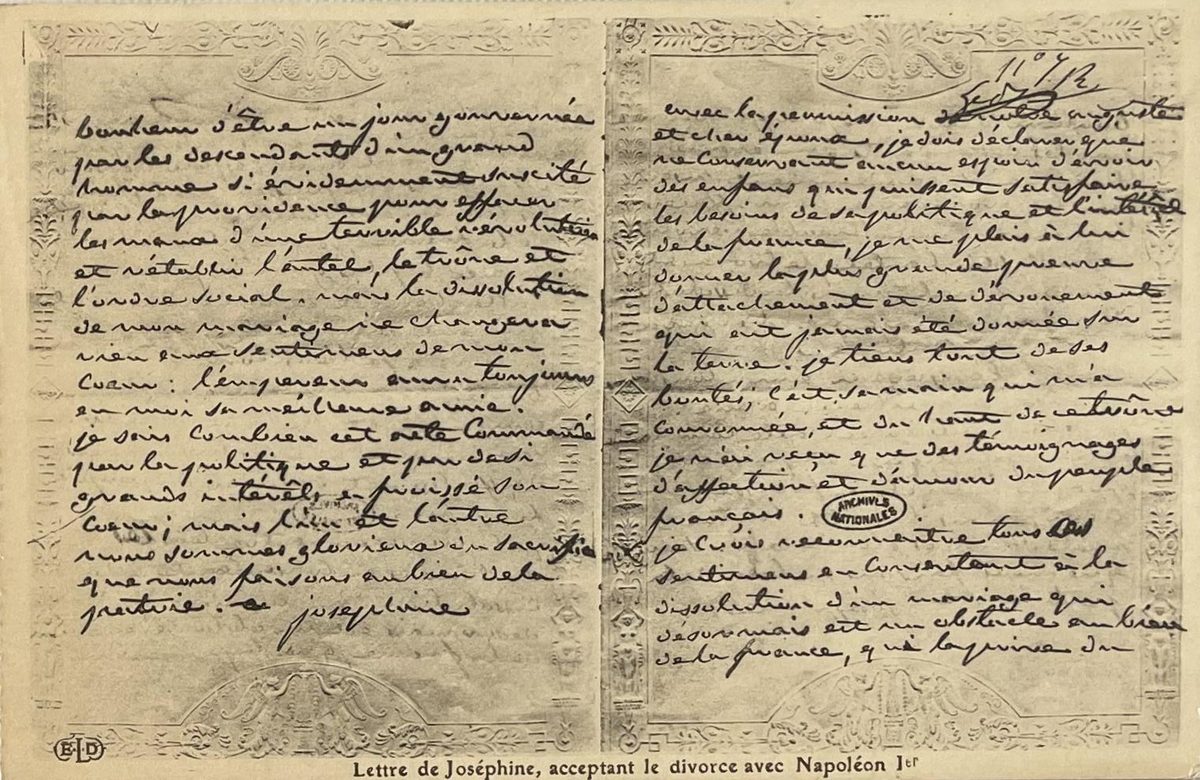 avec la permission de notre auguste
et cher époux, je dois déclarer que
ne conservant aucun espoir d'avoir
des enfans qui puissent satisfaire
les besoins de sa politique et l'intérêt
de la france, je me plais à lui
donner la plus grande preuve
d'attachement et de dévouement
qui ait jamais été donnée sur
la terre. je tiens tout de ses
bontés; c'est sa main qui m'a
couronnée, et du haut de ce trône
je n'ai reçu que des témoignages
d'affection et d'amour du peuple
français.
ARCHIVES
NATIONALES
je crois reconnaître tous ces
sentimens en consentant à la
dissolution d'un mariage qui
désormais est un obstacle au bien
de la france, qui la prive du
bonheur d'être un jour gouvernée
par les descendants d'un grand
homme si évidemment suscité
par la providence pour effacer
les maux d'une terrible révolution
et rétablir l'autel, le trône et
l'ordre social. mais la dissolution
de mon mariage ne changera
rien aux sentimens de mon
coeur: l'empereur aura toujours
en moi sa meilleure amie.
je sais combien cet acte commandé
par la politique et par de si
grands intérêts a froissé son
coeur; mais l'un et l'autre
nous sommes glorieux du sacrifice
que nous faisons au bien de la
patrie. joséphine
ELD
Lettre de Joséphine, acceptant le divorce avec Napoléon Ier